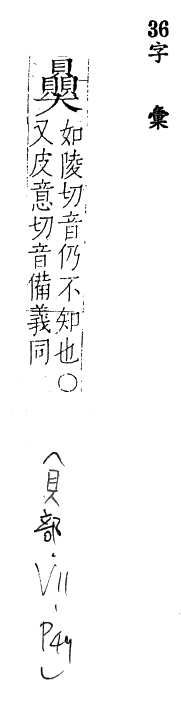 36字 彙
如陵切音仍不知也〇
又皮意切音備義同
(貝部・VII-